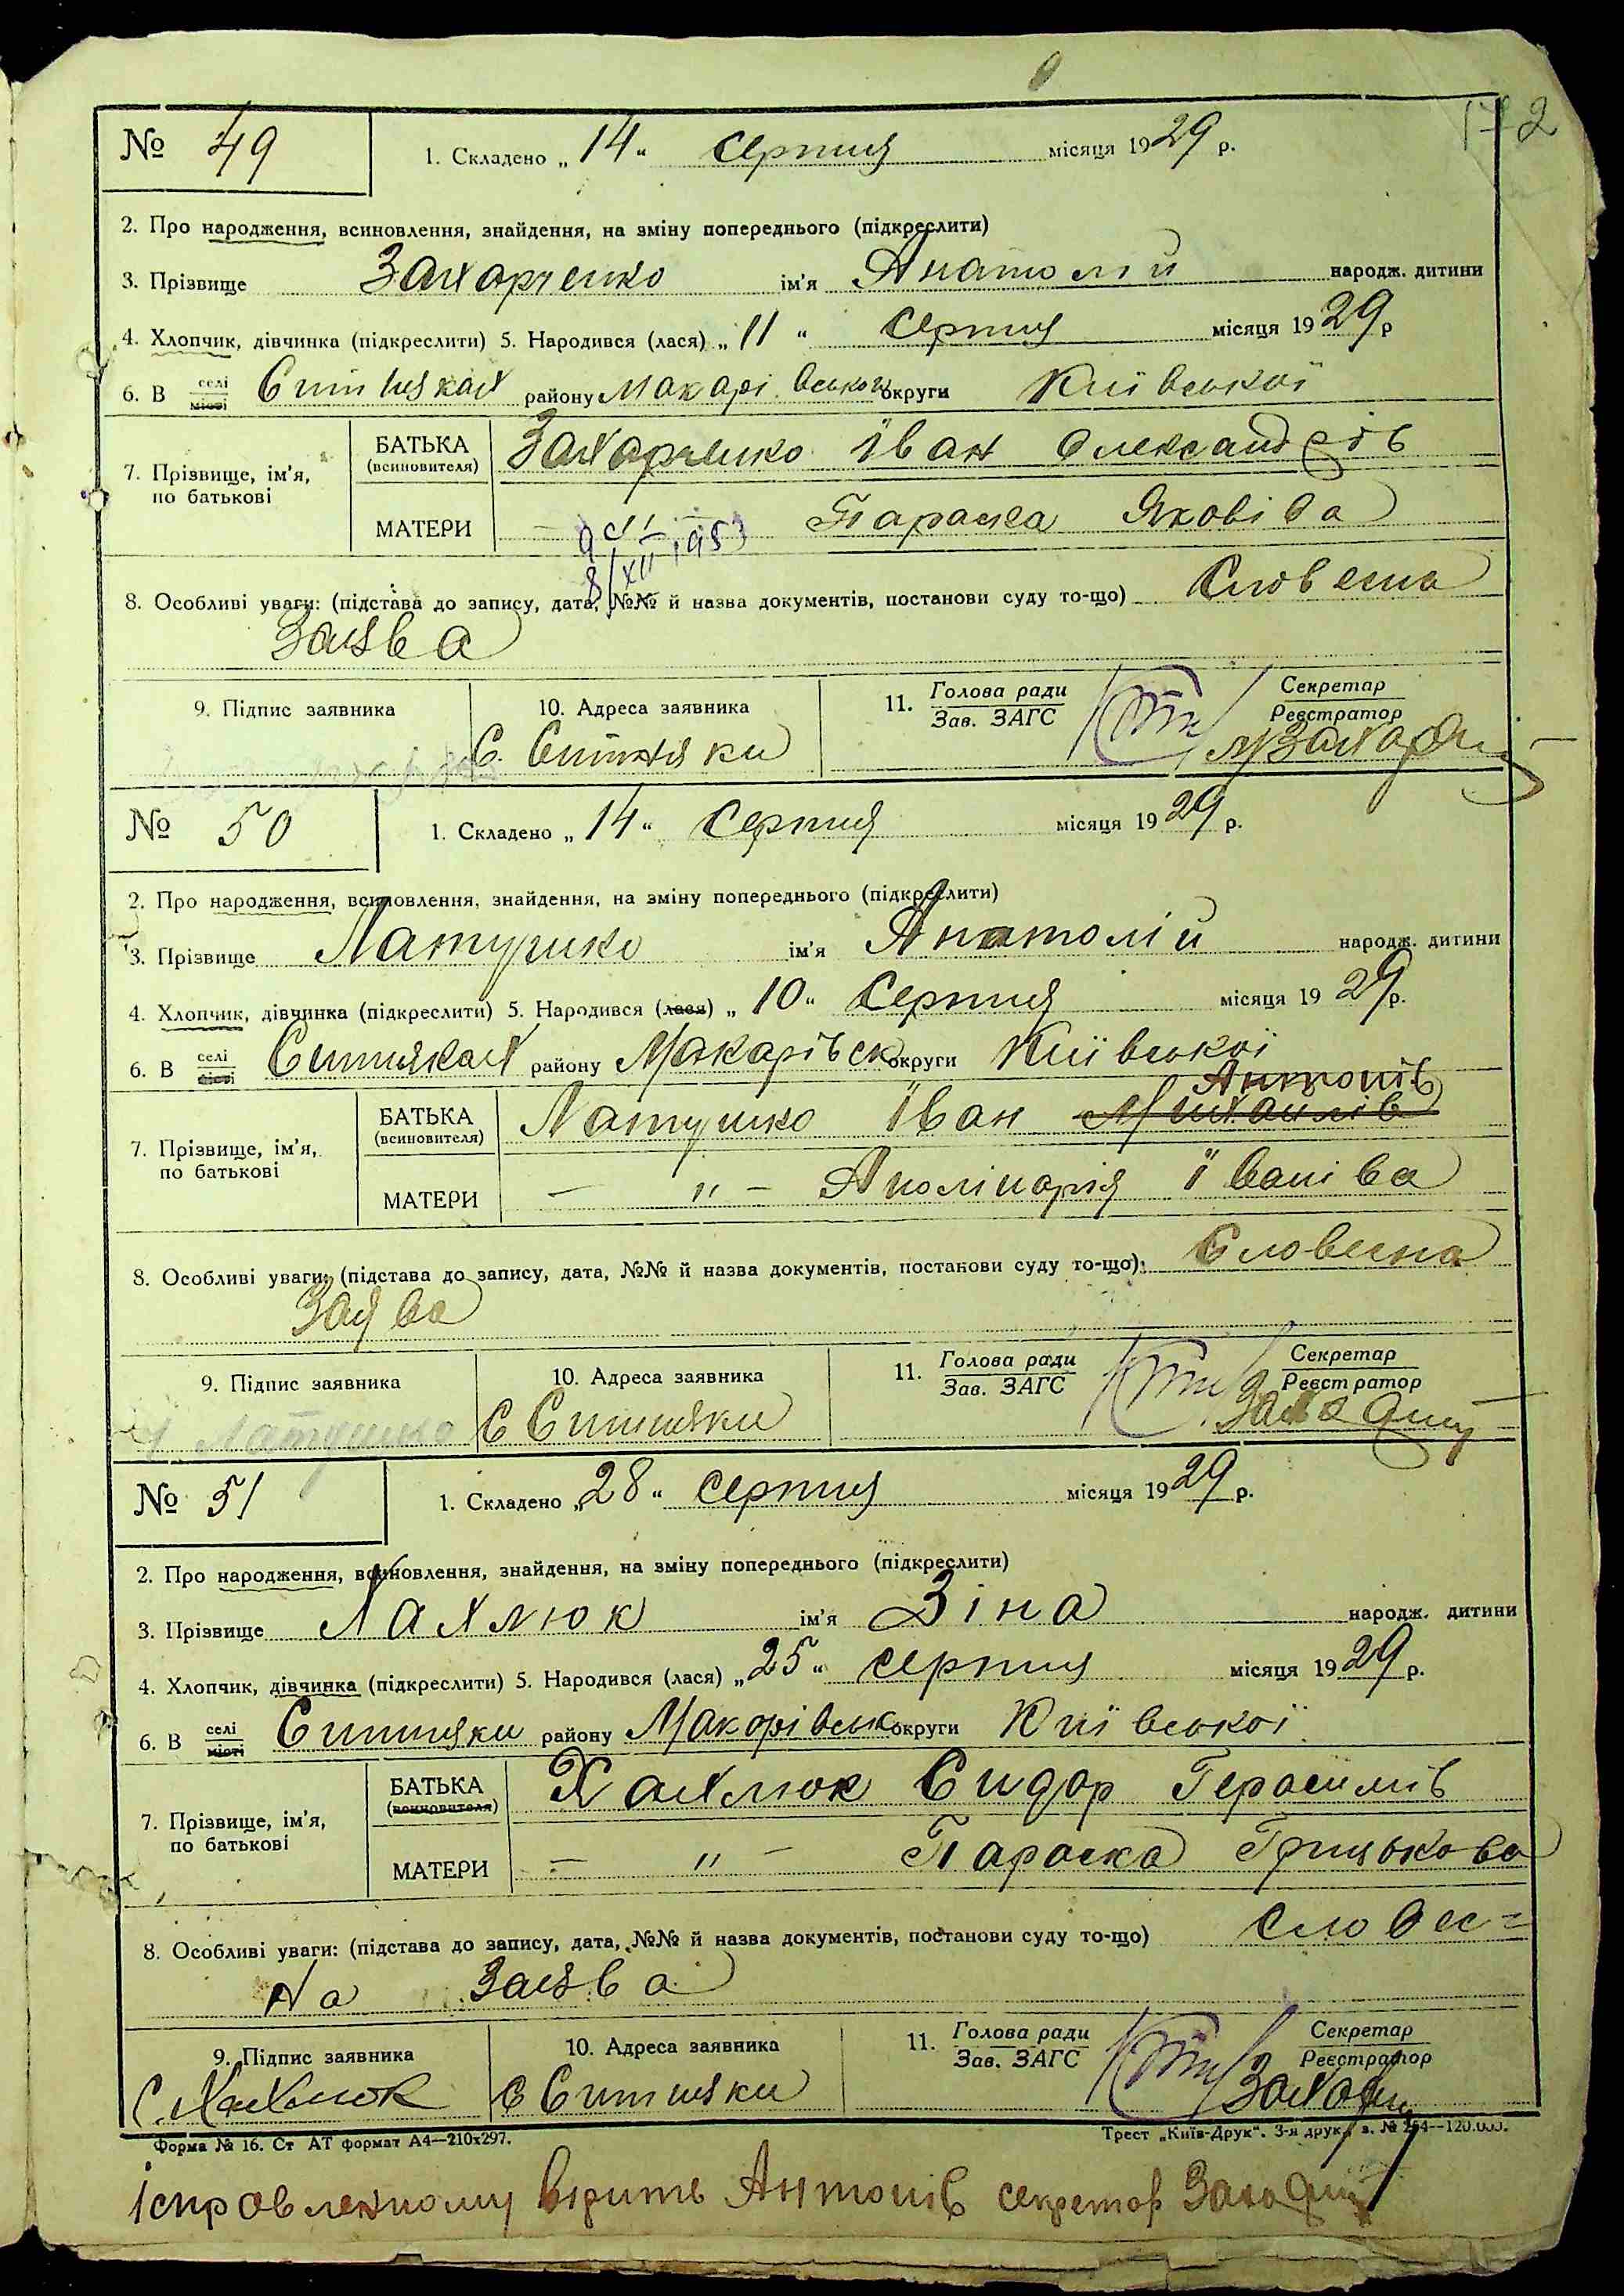 172
№ 49
1. Складено „14“ серпня місяця 1929 р.
2. Про народження, всиновлення, знайдення, на зміну попереднього (підкреслити)
3. Прізвище Захарченко ім'я Анатолій народж. дитини
4. Хлопчик, дівчинка (підкреслити) 5. Народився (лася) „11“ серпня місяця 1929 р
6. В селі місті Ситняках району Макарівської округи Київської
7. Прізвище, ім'я, по батькові
БАТЬКА (всиновителя) Захарченко Іван Олександрів
МАТЕРИ — „ — Параска Яковіва
8/XII 1953
8. Особливі уваги: (підстава до запису, дата, №№ й назва документів, постанови суду то-що) Словесна
Заява
9. Підпис заявника 10. Адреса заявника 11. Голова ради Зав. ЗАГС Секретар Реєстратор
С. Ситняки
№ 50
1. Складено „14“ серпня місяця 1929 р.
2. Про народження, всиновлення, знайдення, на зміну попереднього (підкреслити)
3. Прізвище Латушко ім'я Анатолій народж. дитини
4. Хлопчик, дівчинка (підкреслити) 5. Народився (лася) „10“ Серпня місяця 1929 р.
6. В селі місті Ситняках району Макарівськ округи Київської
Антонів
7. Прізвище, ім'я, по батькові
БАТЬКА (всиновителя) Латушко Іван Михайлів
МАТЕРИ — „ — Аполінарія Іваніва
8. Особливі уваги: (підстава до запису, дата, №№ й назва документів, постанови суду то-що): Словесна
Заява
9. Підпис заявника 10. Адреса заявника 11. Голова ради Зав. ЗАГС Секретар Реєстратор
Латушко С Ситняки
№ 51
1. Складено „28“ серпня місяця 1929 р.
2. Про народження, всиновлення, знайдення, на зміну попереднього (підкреслити)
3. Прізвище Хахлюк ім'я Зіна народж. дитини
4. Хлопчик, дівчинка (підкреслити) 5. Народився (лася) „25“ серпня місяця 1929 р.
6. В селі місті Ситняки району Макорівськ округи Київської
7. Прізвище, ім'я, по батькові
БАТЬКА (всиновителя) Хахлюк Сидор Герасимів
МАТЕРИ — „ — Параска Грицькова
8. Особливі уваги: (підстава до запису, дата, №№ й назва документів, постанови суду то-що) Словес=
на Заява
9. Підпис заявника 10. Адреса заявника 11. Голова ради Зав. ЗАГС Секретар Реєстратор
С. Хахлюк С Ситняки
Форма № 16. Ст АТ формат А4—210x297. Трест „Київ-Друк“. 3-я друк. з. № 254—120.000.
Ісправленному вірить Антонів секретар